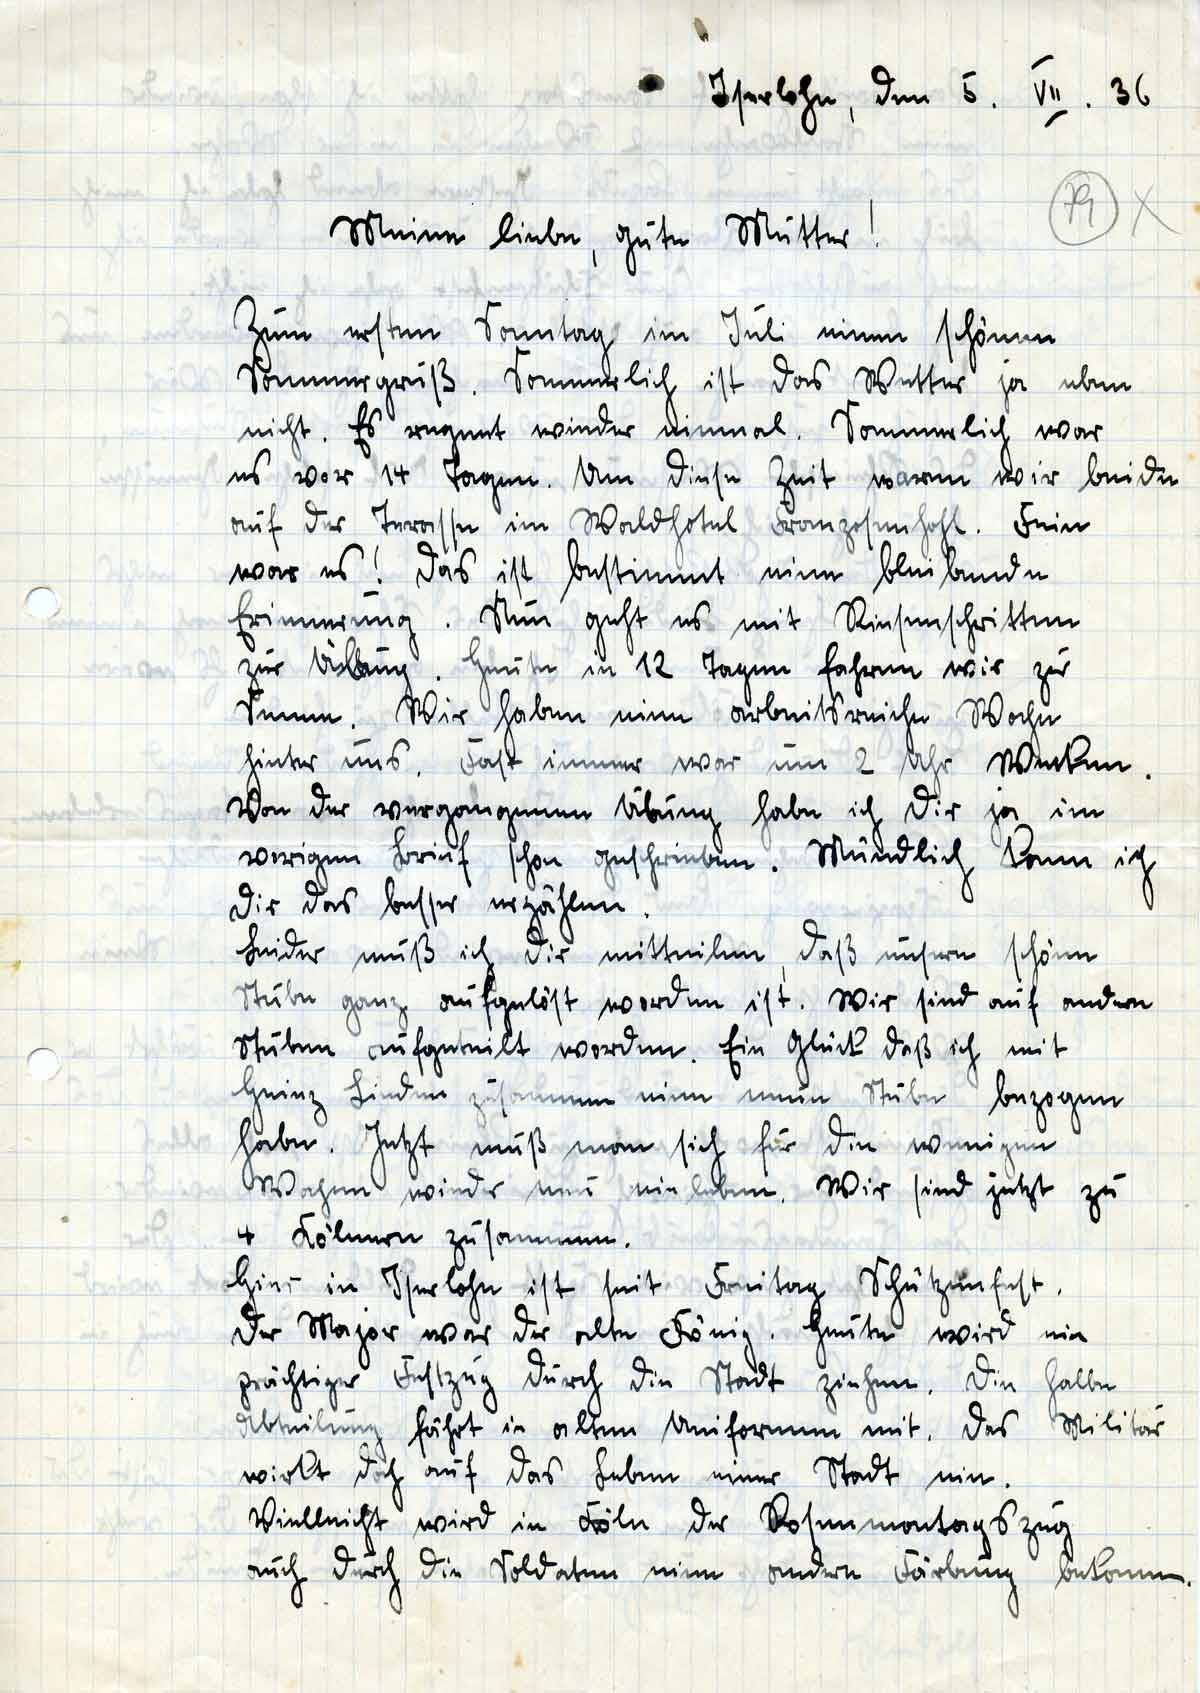 Iserlohn, den 5. VII. 36
Meine liebe, gute Mutter!
Zum ersten Sonntag im Juli einen schönen
Sommergruß. Sommerlich ist das Wetter ja eben
nicht. Es regnet wieder einmal. Sommerlich war
es vor 14 Tagen. Um diese Zeit waren wir beide
auf der Terasse im Waldhotel Franzosenhohl. Fein
war es! Das ist bestimmt eine bleibende
Erinnerung. Nun geht es mit Riesenschritten
zur Übung. Heute in 12 Tagen fahren wir zur
Senne. Wir haben eine arbeitsreiche Woche
hinter uns. Fast immer war um 2 Uhr Wecken.
Von der vergangenen Übung habe ich Dir ja im
vorigen Brief schon geschrieben. Mündlich kann ich
Dir das besser erzählen.
Leider muß ich Dir mitteilen, daß unsere schöne
Stube ganz aufgelöst worden ist. Wir sind auf andere
Stuben aufgeteilt worden. Ein Glück daß ich mit
Heinz Linden zusammen eine neue Stube bezogen
habe. Jetzt muß man sich für die wenigen
Wochen wieder neu einleben. Wir sind jetzt zu
4 Kölnern zusammen.
Hier in Iserlohn ist seit Freitag Schützenfest.
Der Major war der alte König. Heute wird ein
prächtiger Festzug durch die Stadt ziehen. Die halbe
Abteilung fährt in alten Uniformen mit. Das Militär
wirkt doch auf das Leben einer Stadt ein.
Vielleicht wird in Köln der Rosenmontagszug
auch durch die Soldaten eine andere Färbung bekomm.